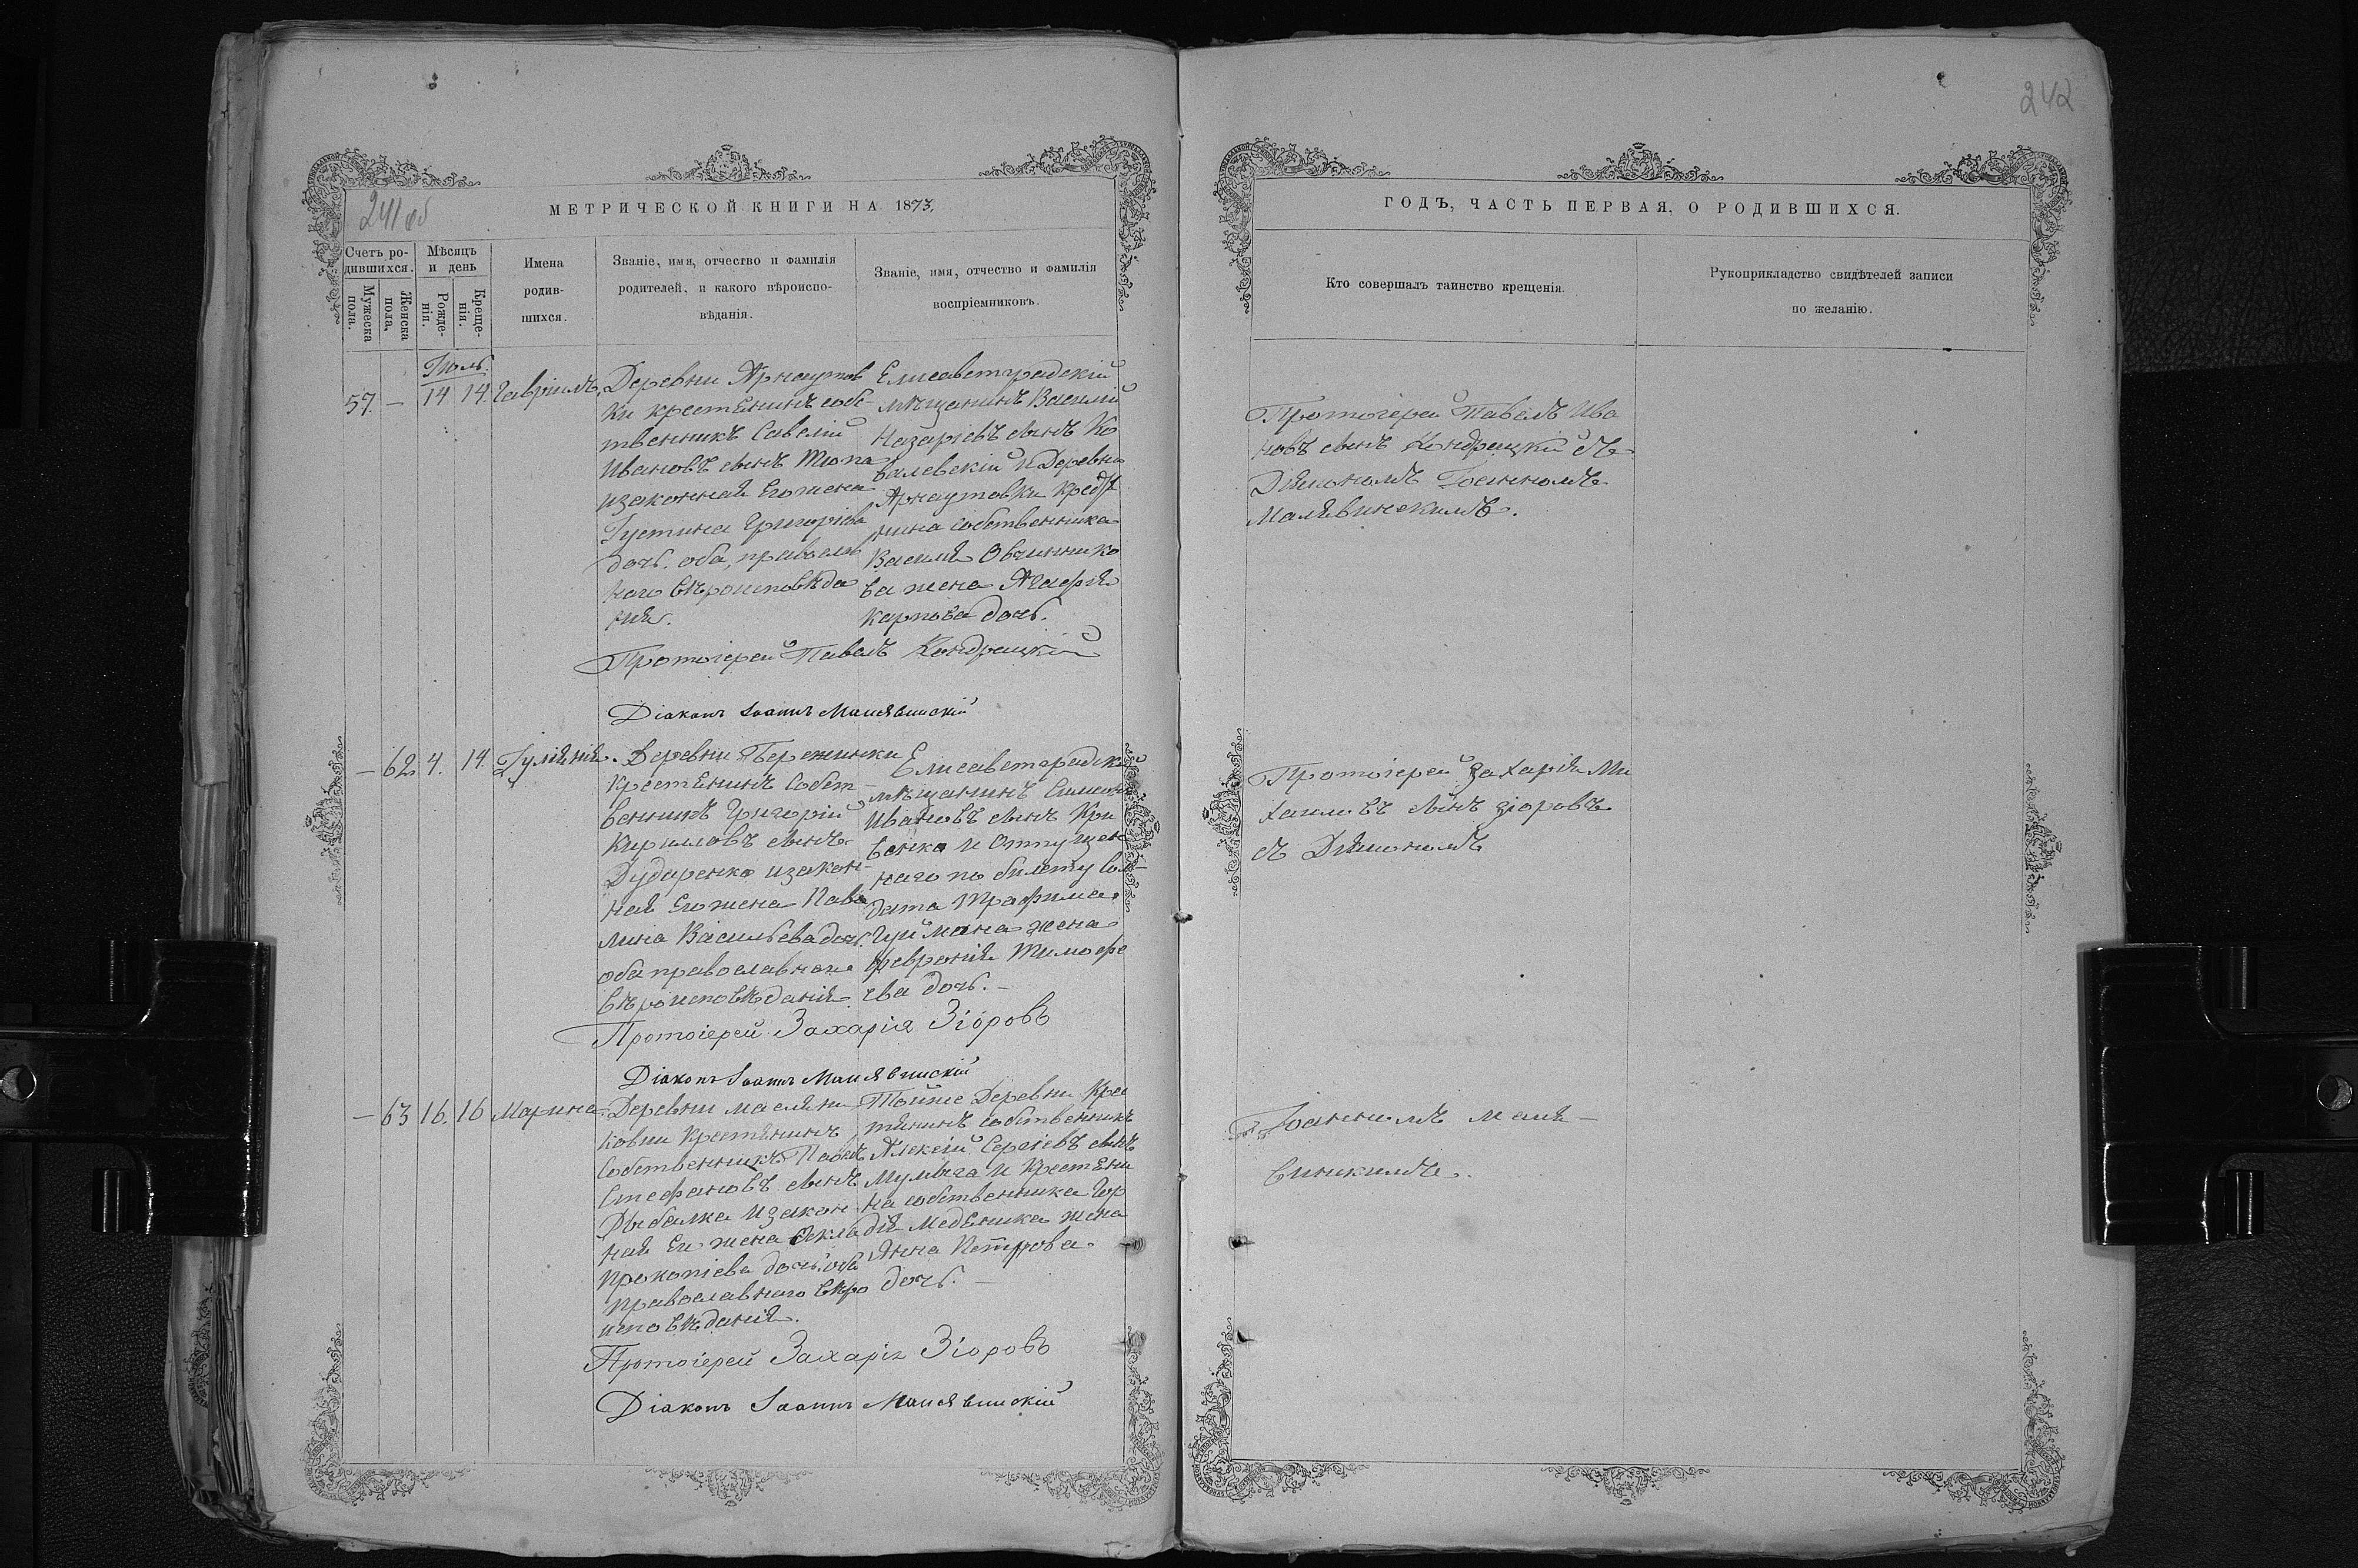 241 об
МЕТРИЧЕСКОЙ КНИГИ НА 1873,
Счетъ ро-
дившихся.
Мужеска
пола.
Женска
пола.
Мѣсяцъ
и день
Рожде-
нія.
Креще-
нія.
Имена
родив-
шихся.
Званіе, имя, отчество и фамилія
родителей, и какого вѣроиспо-
вѣданія.
Званіе, имя, отчество и фамилія
воспріемниковъ.
Іюль.
57. — 14 14. Гавріилъ.
Деревни Арнаутов
ки крестьянинъ собс
твенникъ Савелій
Ивановъ сынъ Тюпа
изаконная Его жена
Іустина Григоріева
дочь. оба, правосла
наго вѣроисповѣда
нія.
Елисаветградскій
мѣщанинъ Василій
Назаріевъ сынъ Ко
валевскій и Деревни
Арнаутовки
нина собственника
Василія Овчиннико
ва жена Агафія
Карпова дочь.
Протоіерей Павелъ Кондрацкій
Діаконъ Іоаннъ Малявинскій
— 62 4. 14. Іуліянія.
Деревни Бережинки
Крестьянинъ Собст-
венникъ Григорій
Кириловъ сынъ
Дударенко изакон
ная Его жена Паво
лина Васильева дочь.
оба православнаго
вѣроисповѣданія.
Елисаветградскій
мѣщанинъ Симеонъ
Ивановъ сынъ Кри
венко и Отпущен
наго по билету Сол-
дата Трафима
Гуймана жена
Февронія Тимофе
ева дочь. —
Протоіерей Захарія Зіоровъ
Діаконъ Іоаннъ Малявинскій
— 63 16. 16 Марина.
Деревни маслени
ковки Крестянинъ
Собственникъ Павелъ
Стефановъ сынъ
Рыбалка изакон
ная Его жена Фекла
Прокопіева дочь. оба
православнаго вѣро
исповѣданія.
Тойже Деревни Крес
тянинъ собственникъ
Алексій Сергіевъ сынъ
Мулыга и Крестьяни
на собственника Гор
дія Медяника жена
Анна Петрова
дочь. —
Протоіерей Захарія Зіоровъ
Діаконъ Іоаннъ Малявинскій
242
ГОДЪ, ЧАСТЬ ПЕРВАЯ, О РОДИВШИХСЯ.
Кто совершалъ таинство крещенія.
Рукоприкладство свидѣтелей записи
по желанію.
Протоіерей Павелъ Ива
новъ сынъ Кондрацкій съ
Діякономъ Іоанномъ
Малявинскимъ.
Протоіерей Захарія Ми
хаиловъ сынъ Зіоровъ
съ Діякономъ
Іоанномъ Маля-
винскимъ.